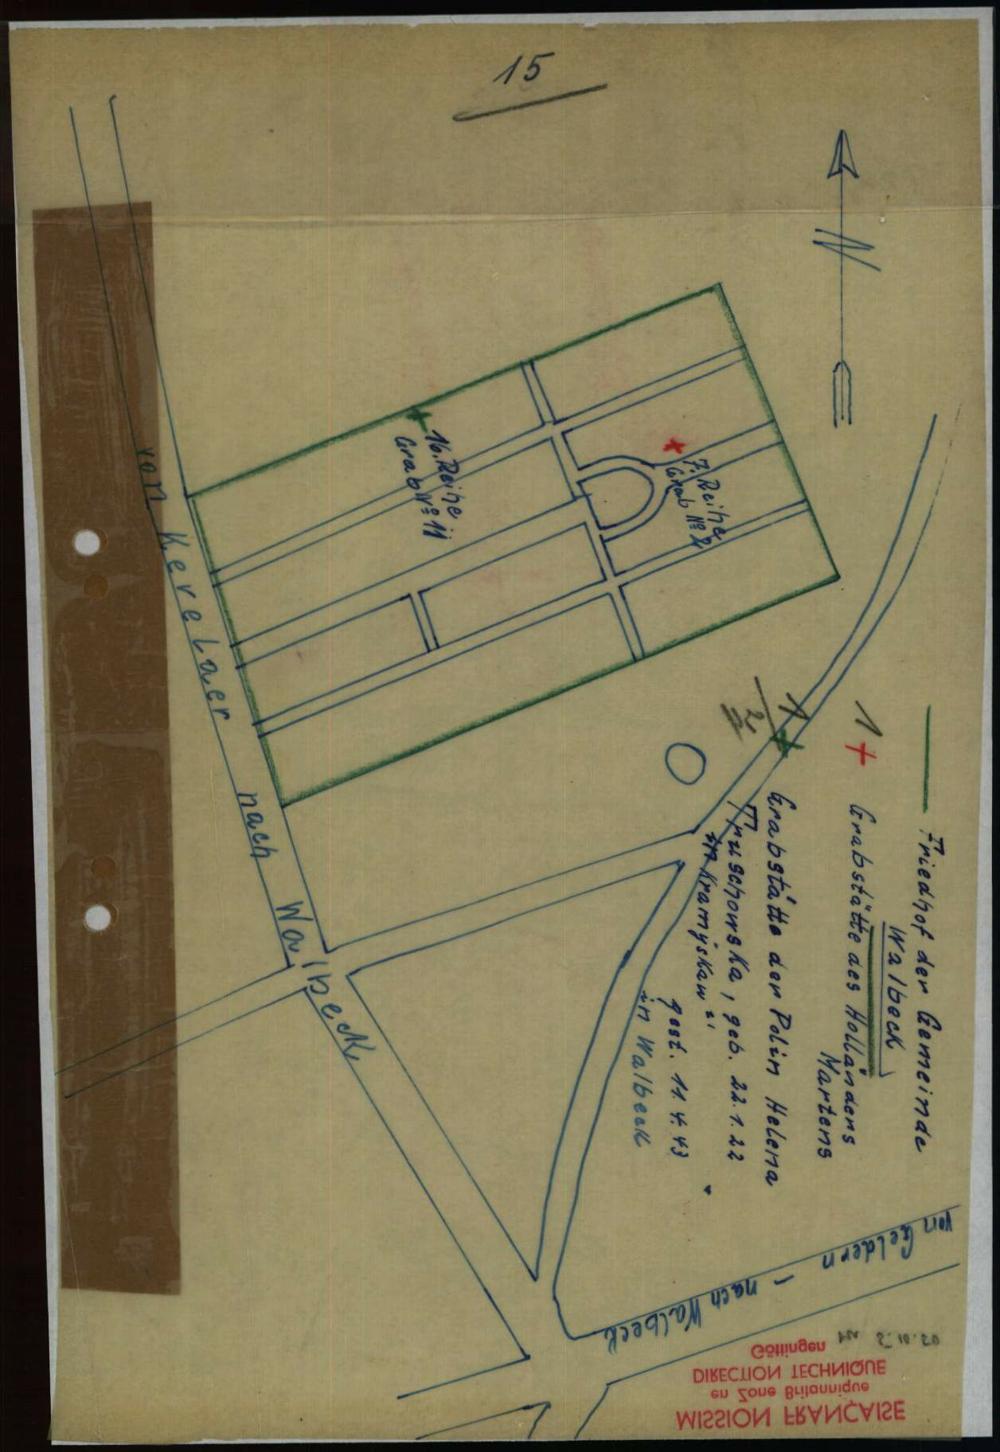 15
N
Friedhof der Gemeinde
Walbeck
1 + Grabstätte des Holländers
Martens
1
Grabstätte der Polin Helena
Truschowska, geb. 22.1.22
gest. 11.4.43
in Walbeck
7. Reihe
Grab №
16. Reihe
Grab № 11
von Kevelaer nach Walbeck
von Geldern - nach Walbeck
MISSION FRANÇAISE
en Zone Britannique
DIRECTION TECHNIQUE
Göttingen